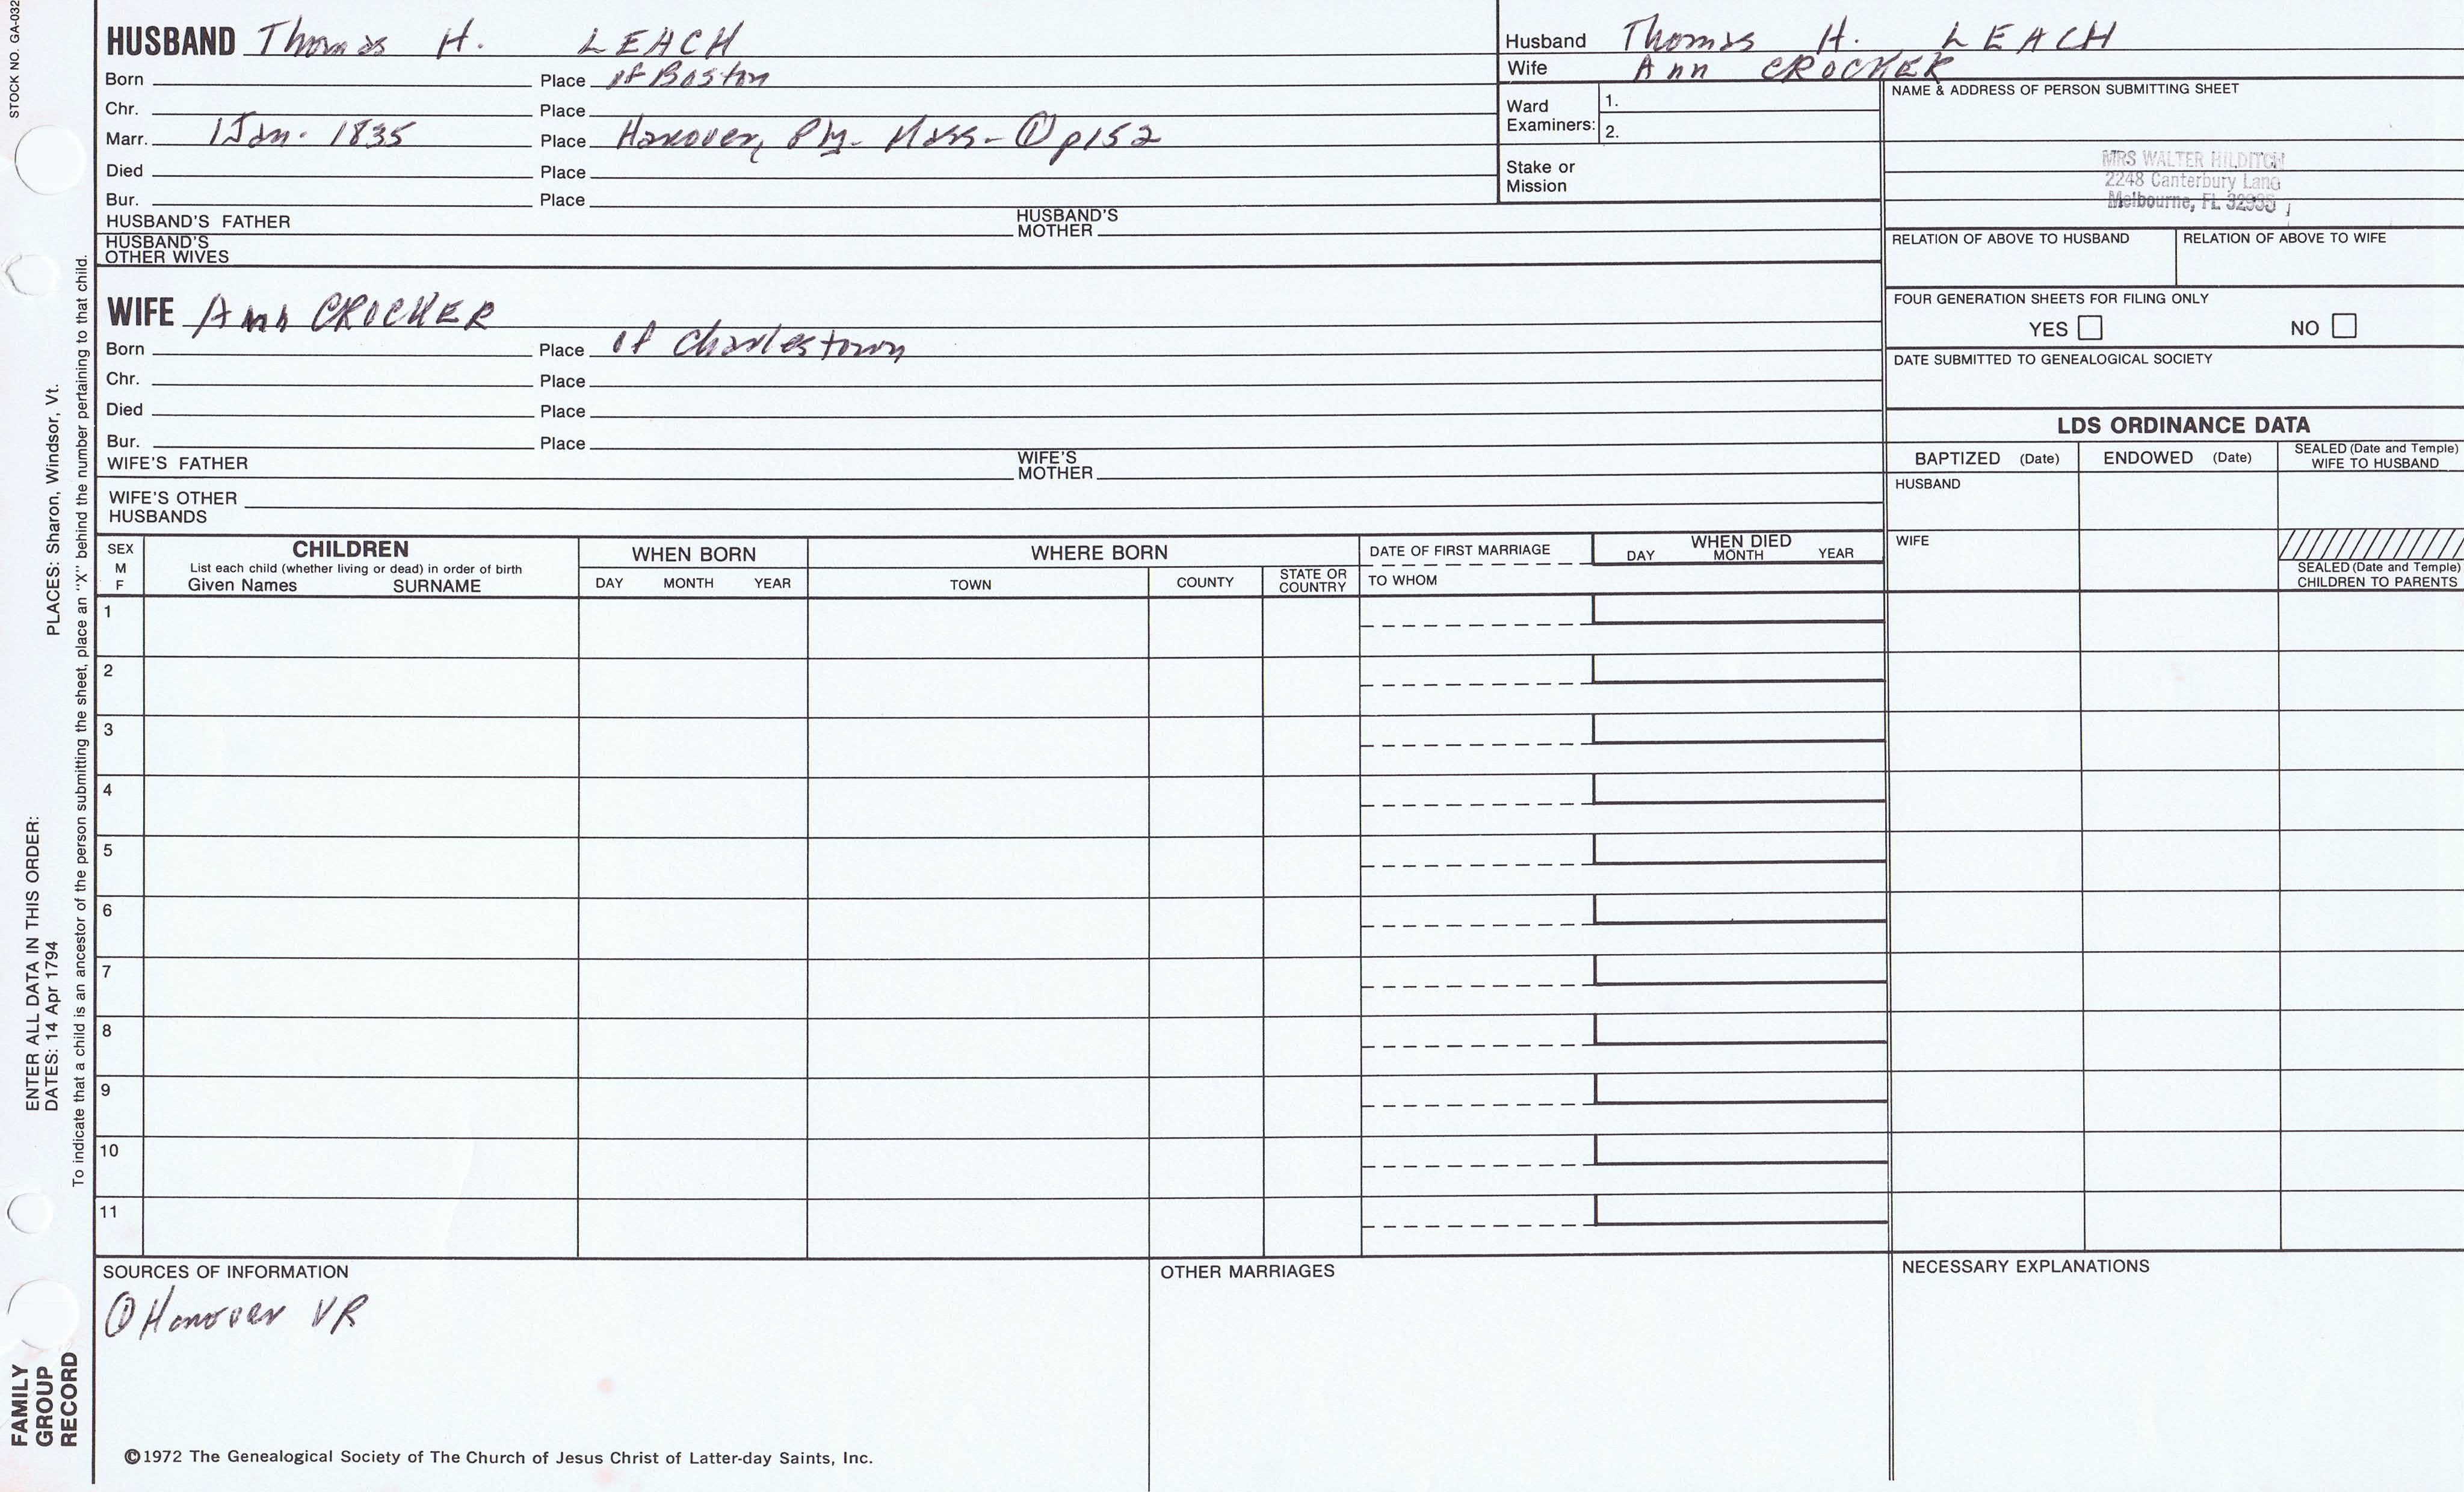 STOCK NO. GA-032
HUSBAND Thomas H. LEACH
Born Place of Boston
Chr. Place
Marr. 1 Jan. 1835 Place Hanover, Ply. Mass- ① p152
Died Place
Bur. Place
HUSBAND'S FATHER HUSBAND'S MOTHER
HUSBAND'S OTHER WIVES
Husband Thomas H. LEACH
Wife Ann CROCKER
Ward Examiners: 1.
2.
Stake or Mission
NAME & ADDRESS OF PERSON SUBMITTING SHEET
MRS WALTER HILDITCH
2248 Canterbury Lane
Melbourne, FL 32935
RELATION OF ABOVE TO HUSBAND RELATION OF ABOVE TO WIFE
FOUR GENERATION SHEETS FOR FILING ONLY
YES NO
DATE SUBMITTED TO GENEALOGICAL SOCIETY
WIFE Ann CROCKER
Born Place of Charlestown
Chr. Place
Died Place
Bur. Place
WIFE'S FATHER WIFE'S MOTHER
WIFE'S OTHER HUSBANDS
LDS ORDINANCE DATA
BAPTIZED (Date) ENDOWED (Date) SEALED (Date and Temple) WIFE TO HUSBAND
HUSBAND
WIFE
SEALED (Date and Temple) CHILDREN TO PARENTS
SEX M F
CHILDREN
List each child (whether living or dead) in order of birth
Given Names SURNAME
WHEN BORN
DAY MONTH YEAR
WHERE BORN
TOWN COUNTY STATE OR COUNTRY
DATE OF FIRST MARRIAGE
TO WHOM
WHEN DIED
DAY MONTH YEAR
1
2
3
4
5
6
7
8
9
10
11
SOURCES OF INFORMATION
① Hanover VR
OTHER MARRIAGES
NECESSARY EXPLANATIONS
©1972 The Genealogical Society of The Church of Jesus Christ of Latter-day Saints, Inc.
ENTER ALL DATA IN THIS ORDER:
DATES: 14 Apr 1794 PLACES: Sharon, Windsor, Vt.
To indicate that a child is an ancestor of the person submitting the sheet, place an "X" behind the number pertaining to that child.
FAMILY
GROUP
RECORD